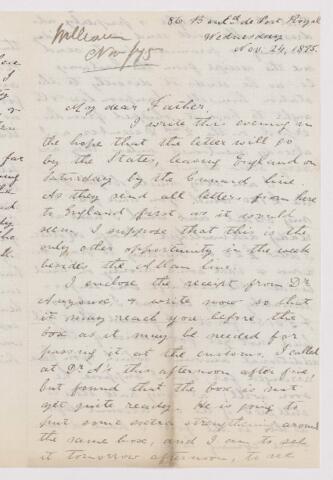 William
Nov /75
86 Boul'd de Port Royal
Wednesday
Nov. 24, 1875.
My dear Father,
I write this evening in
the hope that the letter will go
by the States, leaving England on
Saturday by the Cunard line
As they send all letters from here
to England first, as it would
seem, I suppose that this is the
only other opportunity in the week
besides the Allan line.
I enclose the receipt from Dr
& write now so that
it may reach you before the
box as it may be needed for
passing it at the customs. I called
at Dr A's this afternoon after five
but found that the box is not
yet quite ready. He is going to
put some extra strengthening around
the same box, and I am to see
it tomorrow afternoon, to see